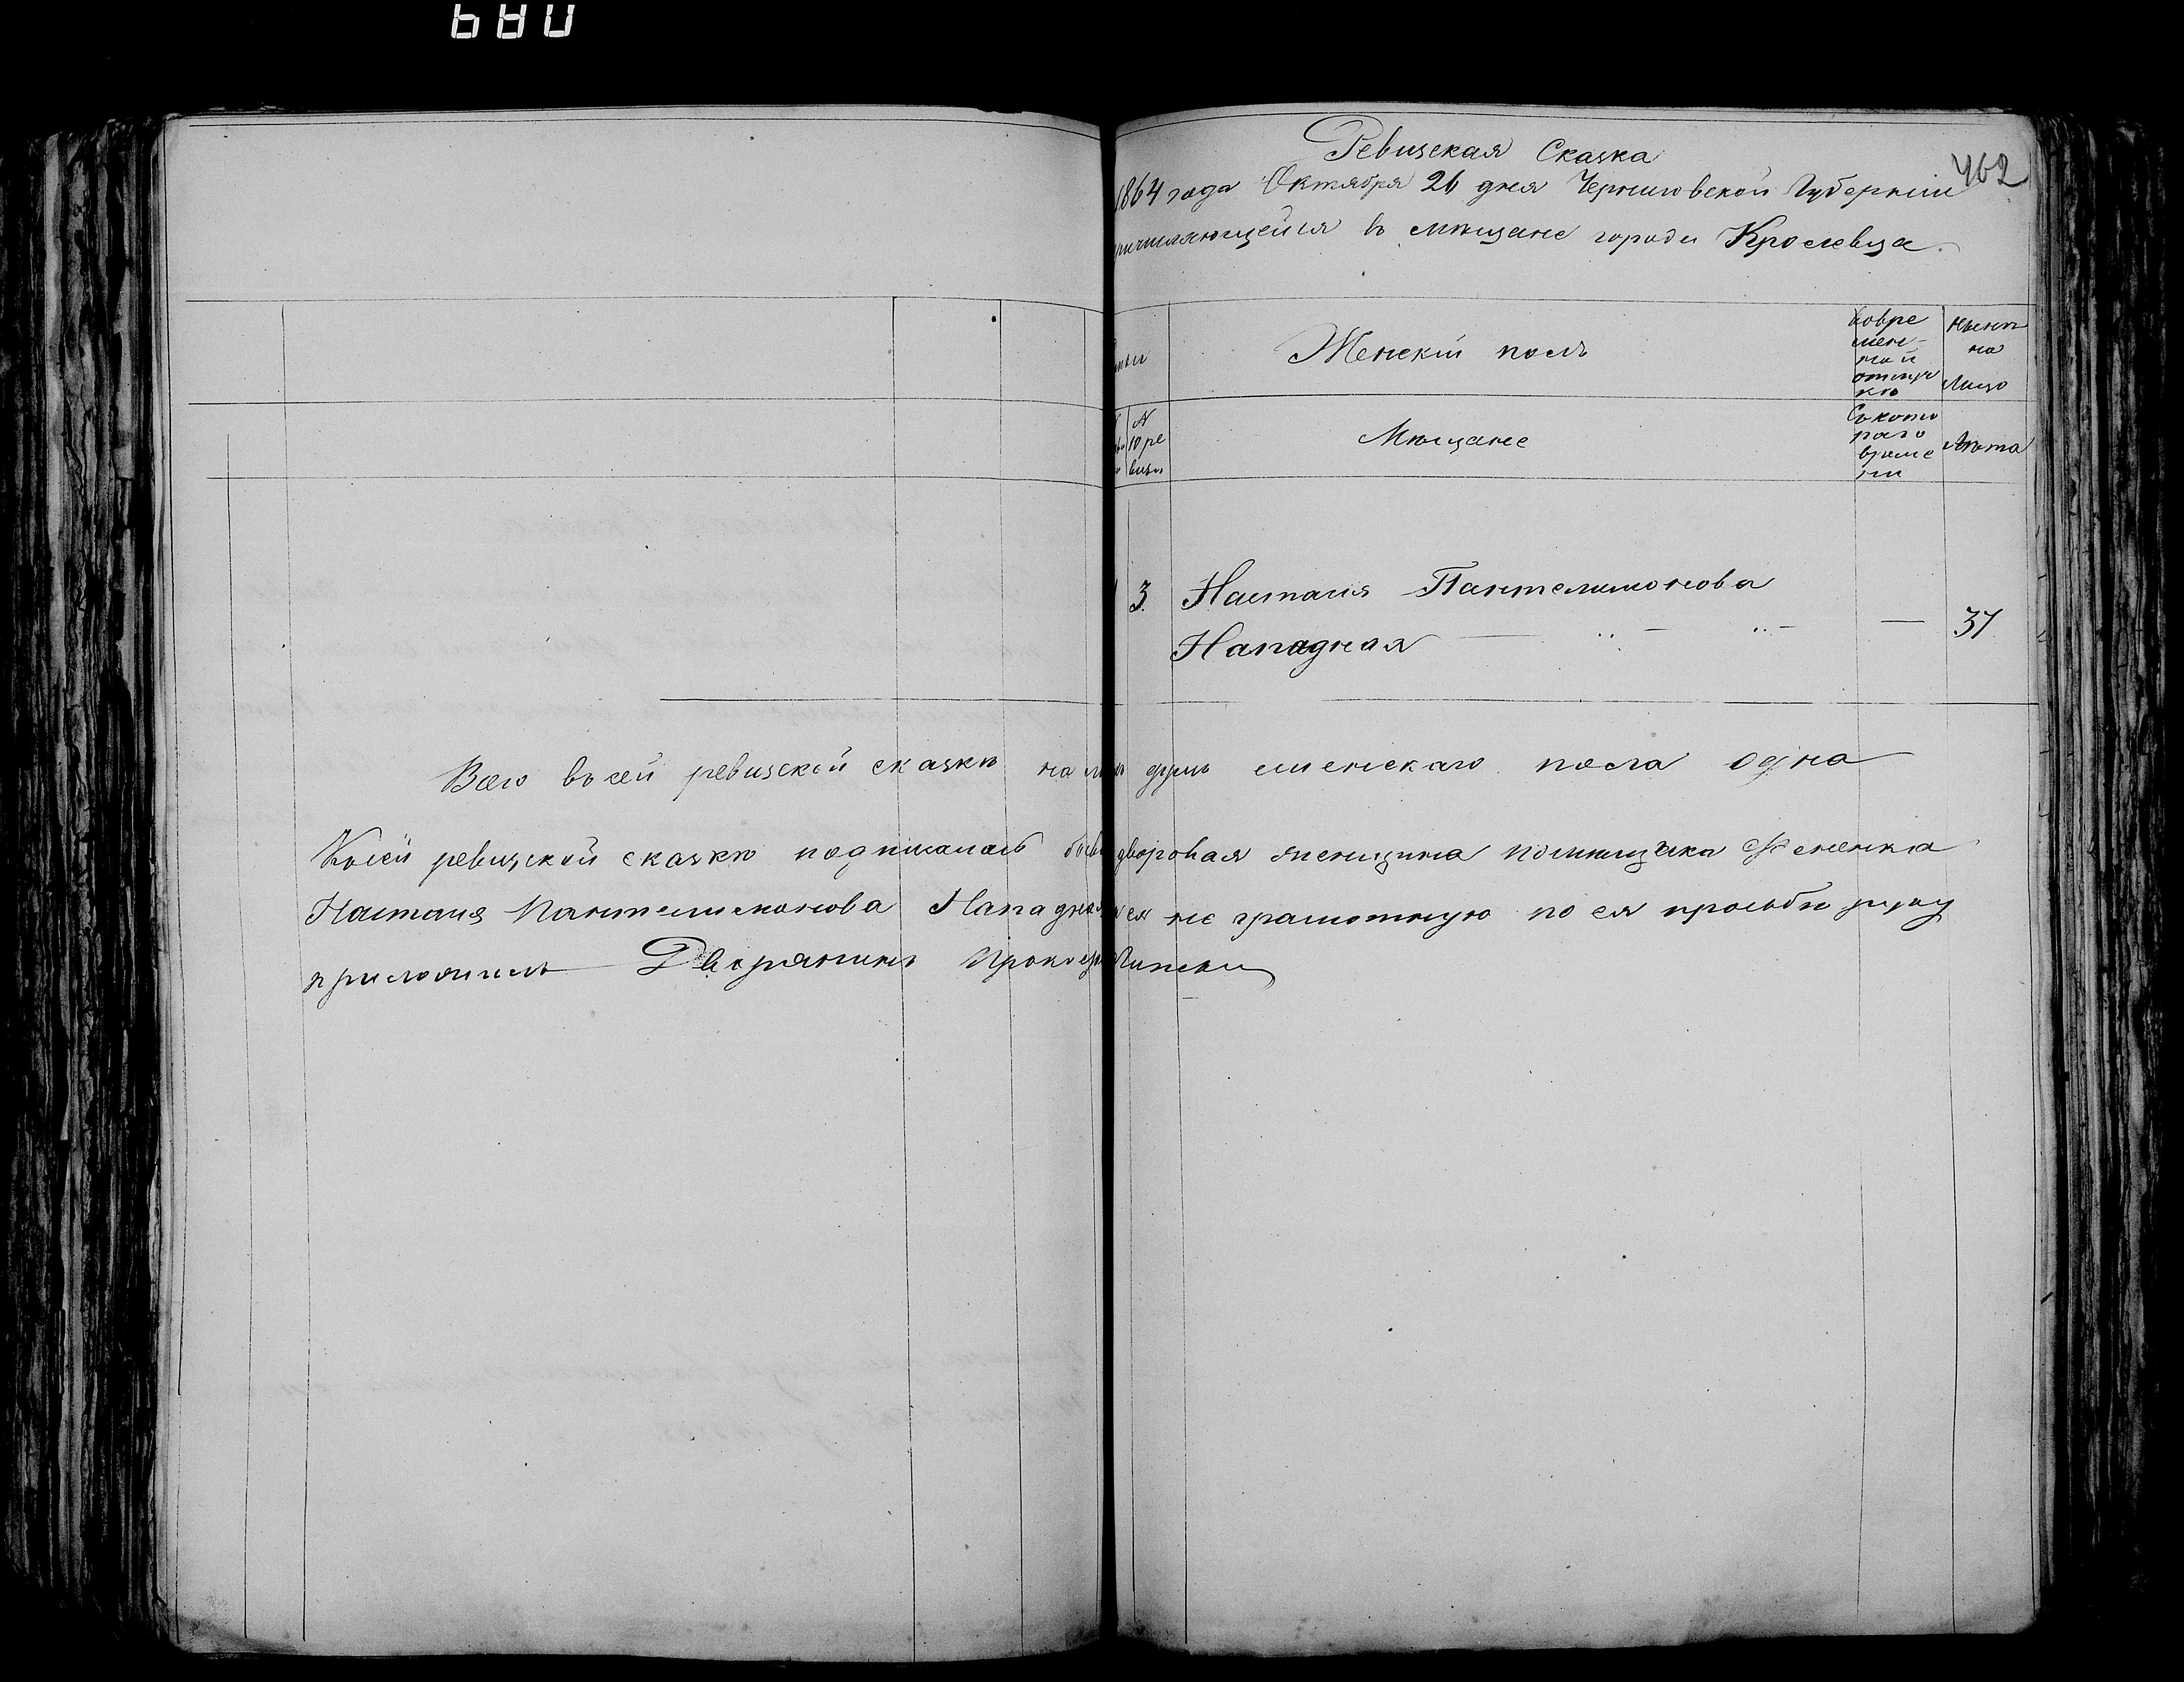 680
Ревизская Сказка
462
1864 года Октября 26 дня Черниговской Губерніи
причисляющейся въ мѣщане города Кролевца.
Женскій полъ
Во вре
мен-
ной
отлуч
кѣ
нынѣ
на
лицо
№
10 ре
визіи
Мѣщане
Съ кото
раго
време
ни
Лѣта
3. Настасія Пантелимонова
Нападная — — — 37
Всего въ сей ревизской сказкѣ на лицо душъ женскаго пола одна
Къ сей ревизской сказкѣ подписалась дворовая женщина помѣщика
Настасія Пантелимонова Нападная не грамотную по ея прозьбѣ руку
приложилъ Дворянинъ